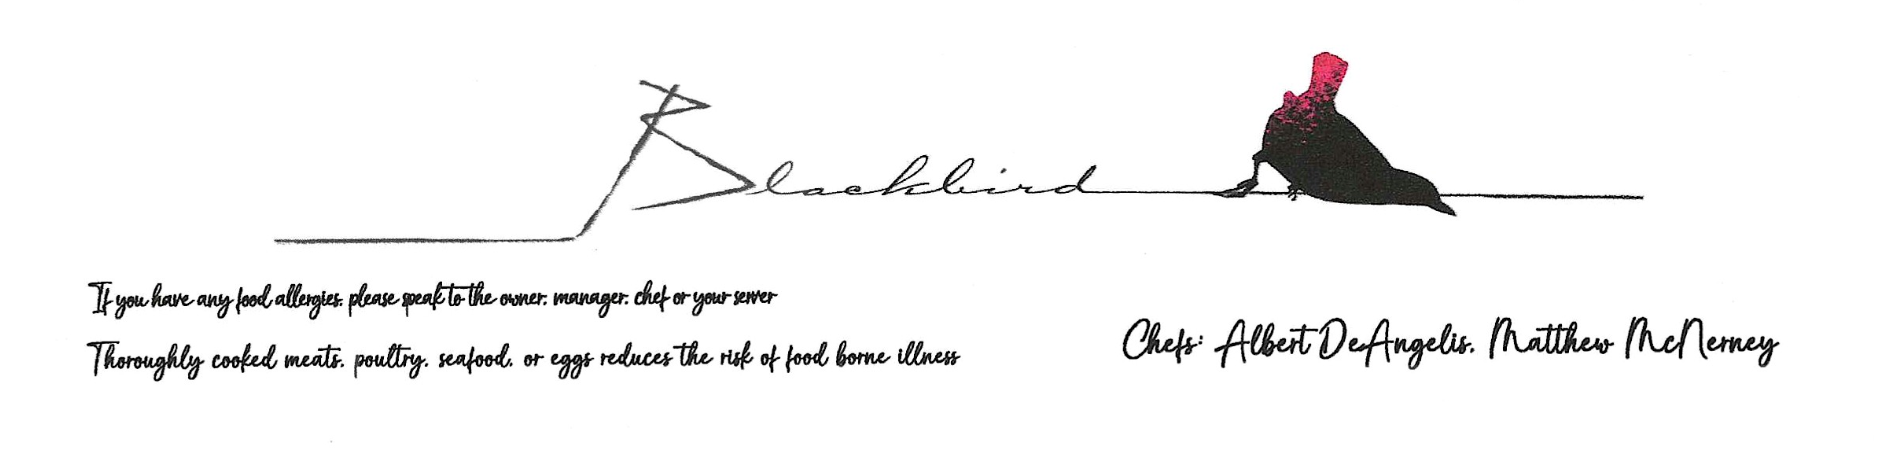 Blackbird
If you have any food allergies, please speak to the owner, manager, chef or your server
Thoroughly cooked meats, poultry, seafood, or eggs reduces the risk of food borne illness
Chefs: Albert DeAngelis, Matthew McNerney